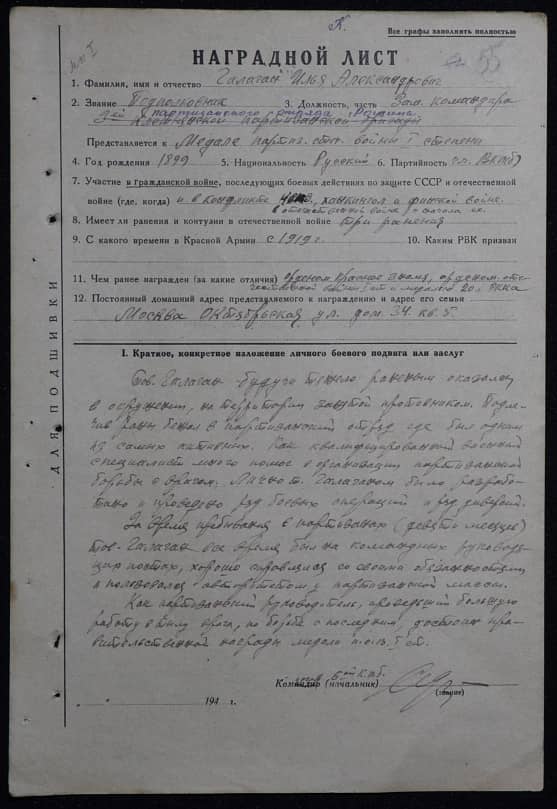 Все графы заполнять полностью
НАГРАДНОЙ ЛИСТ
1. Фамилия, имя и отчество Галаган Илья Александрович
2. Звание Подполковник 3. Должность, часть Зам. командира
партизанского отряда Родина
Клетнянской партизанской бригады
Представляется к Медале партиз. отеч. войны I степени
4. Год рождения 1899 5. Национальность Русский 6. Партийность чл. ВКП(б)
7. Участие в гражданской войне, последующих боевых действиях по защите СССР и отечественной
войне (где, когда) и в конфликте халхингол и финской войне.
в отечественной войне с начала ее
8. Имеет ли ранения и контузии в отечественной войне три ранения
9. С какого времени в Красной Армии с 1919 г. 10. Каким РВК призван
11. Чем ранее награжден (за какие отличия) орденом Красное знамя, орденом оте-
чественной войны I ст и медалью 20 л. РККА
12. Постоянный домашний адрес представляемого к награждению и адрес его семьи
Москва Октябрьская ул. дом. 34 кв. 5.
ДЛЯ ПОДШИВКИ
I. Краткое, конкретное изложение личного боевого подвига или заслуг
Тов. Галаган будучи тяжело раненым оказался
в окружении, на территории занятой противником. Подле-
чив раны бежал в партизанский отряд где был одним
из самых активных. Как квалифицированный военный
специалист много помог в организации партизанской
борьбы с врагом. Лично т. Галаганом было разрабо-
тано и проведено ряд боевых операций и ряд диверсий.
За время пребывания в партизанах (девять месяцев)
тов. Галаган все время был на командных руководя-
щих постах, хорошо справлялся со своими обязанностями
и пользовался авторитетом у партизанской массы.
Как партизанский руководитель, проведший большую
работу в тылу врага, по борьбе с последним, достоин пра-
вительственной награды медали п.о.в. I ст.
Командир (начальник)
(звание)
194 г.